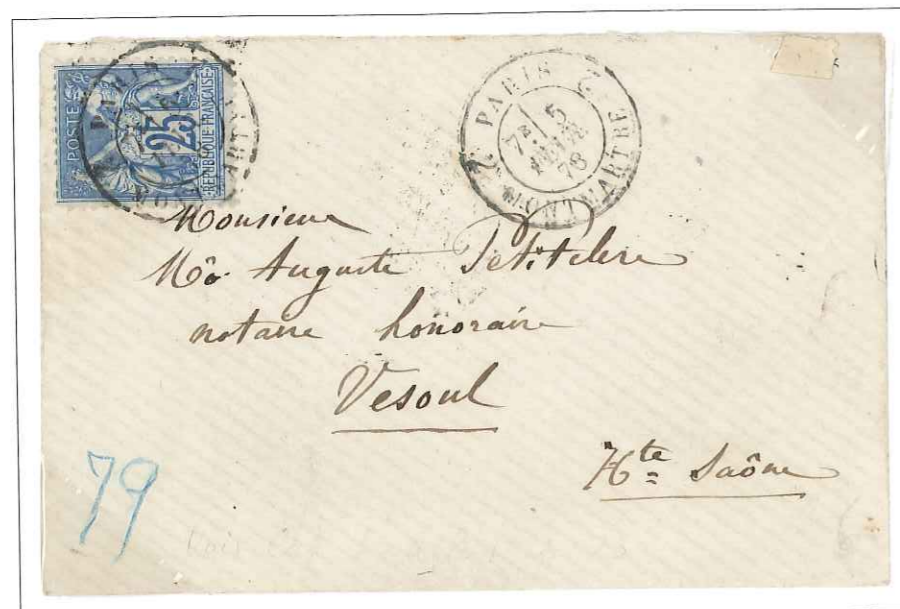 POSTE
25
REPUBLIQUE FRANÇAISE
PARIS
PARIS
MONTMARTRE
7E 5
78
Monsieur
Auguste Petitclerc
notaire honoraire
Vesoul
Hte Saône
79